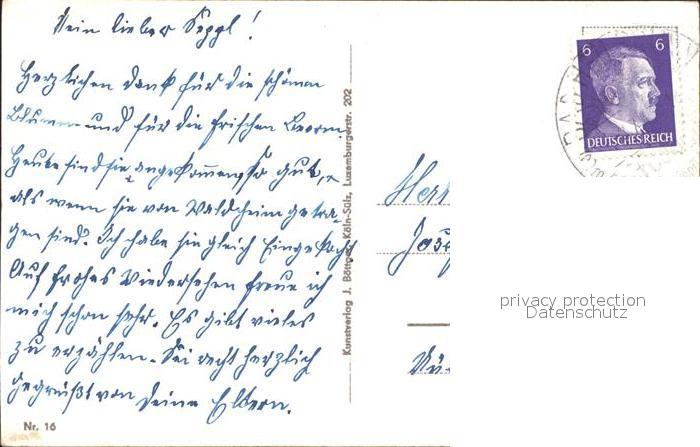 Mein lieber Seppl!
Herzlichen Dank für die schönen
Blumen und für die frischen
Heute sind sie angekommen, so gut,
als wenn sie von Waldheim getra-
gen sind. Ich habe sie gleich eingekocht
Auf frohes Wiedersehen freue ich
mich schon sehr. Es gibt vieles
zu erzählen. Sei recht herzlich
gegrüßt von Deine Eltern.
Nr. 16
Kunstverlag J. Böttger, Köln-Sülz, Luxemburgerstr. 202
6 6
DEUTSCHES REICH
Herr
Jose
privacy protection
Datenschutz